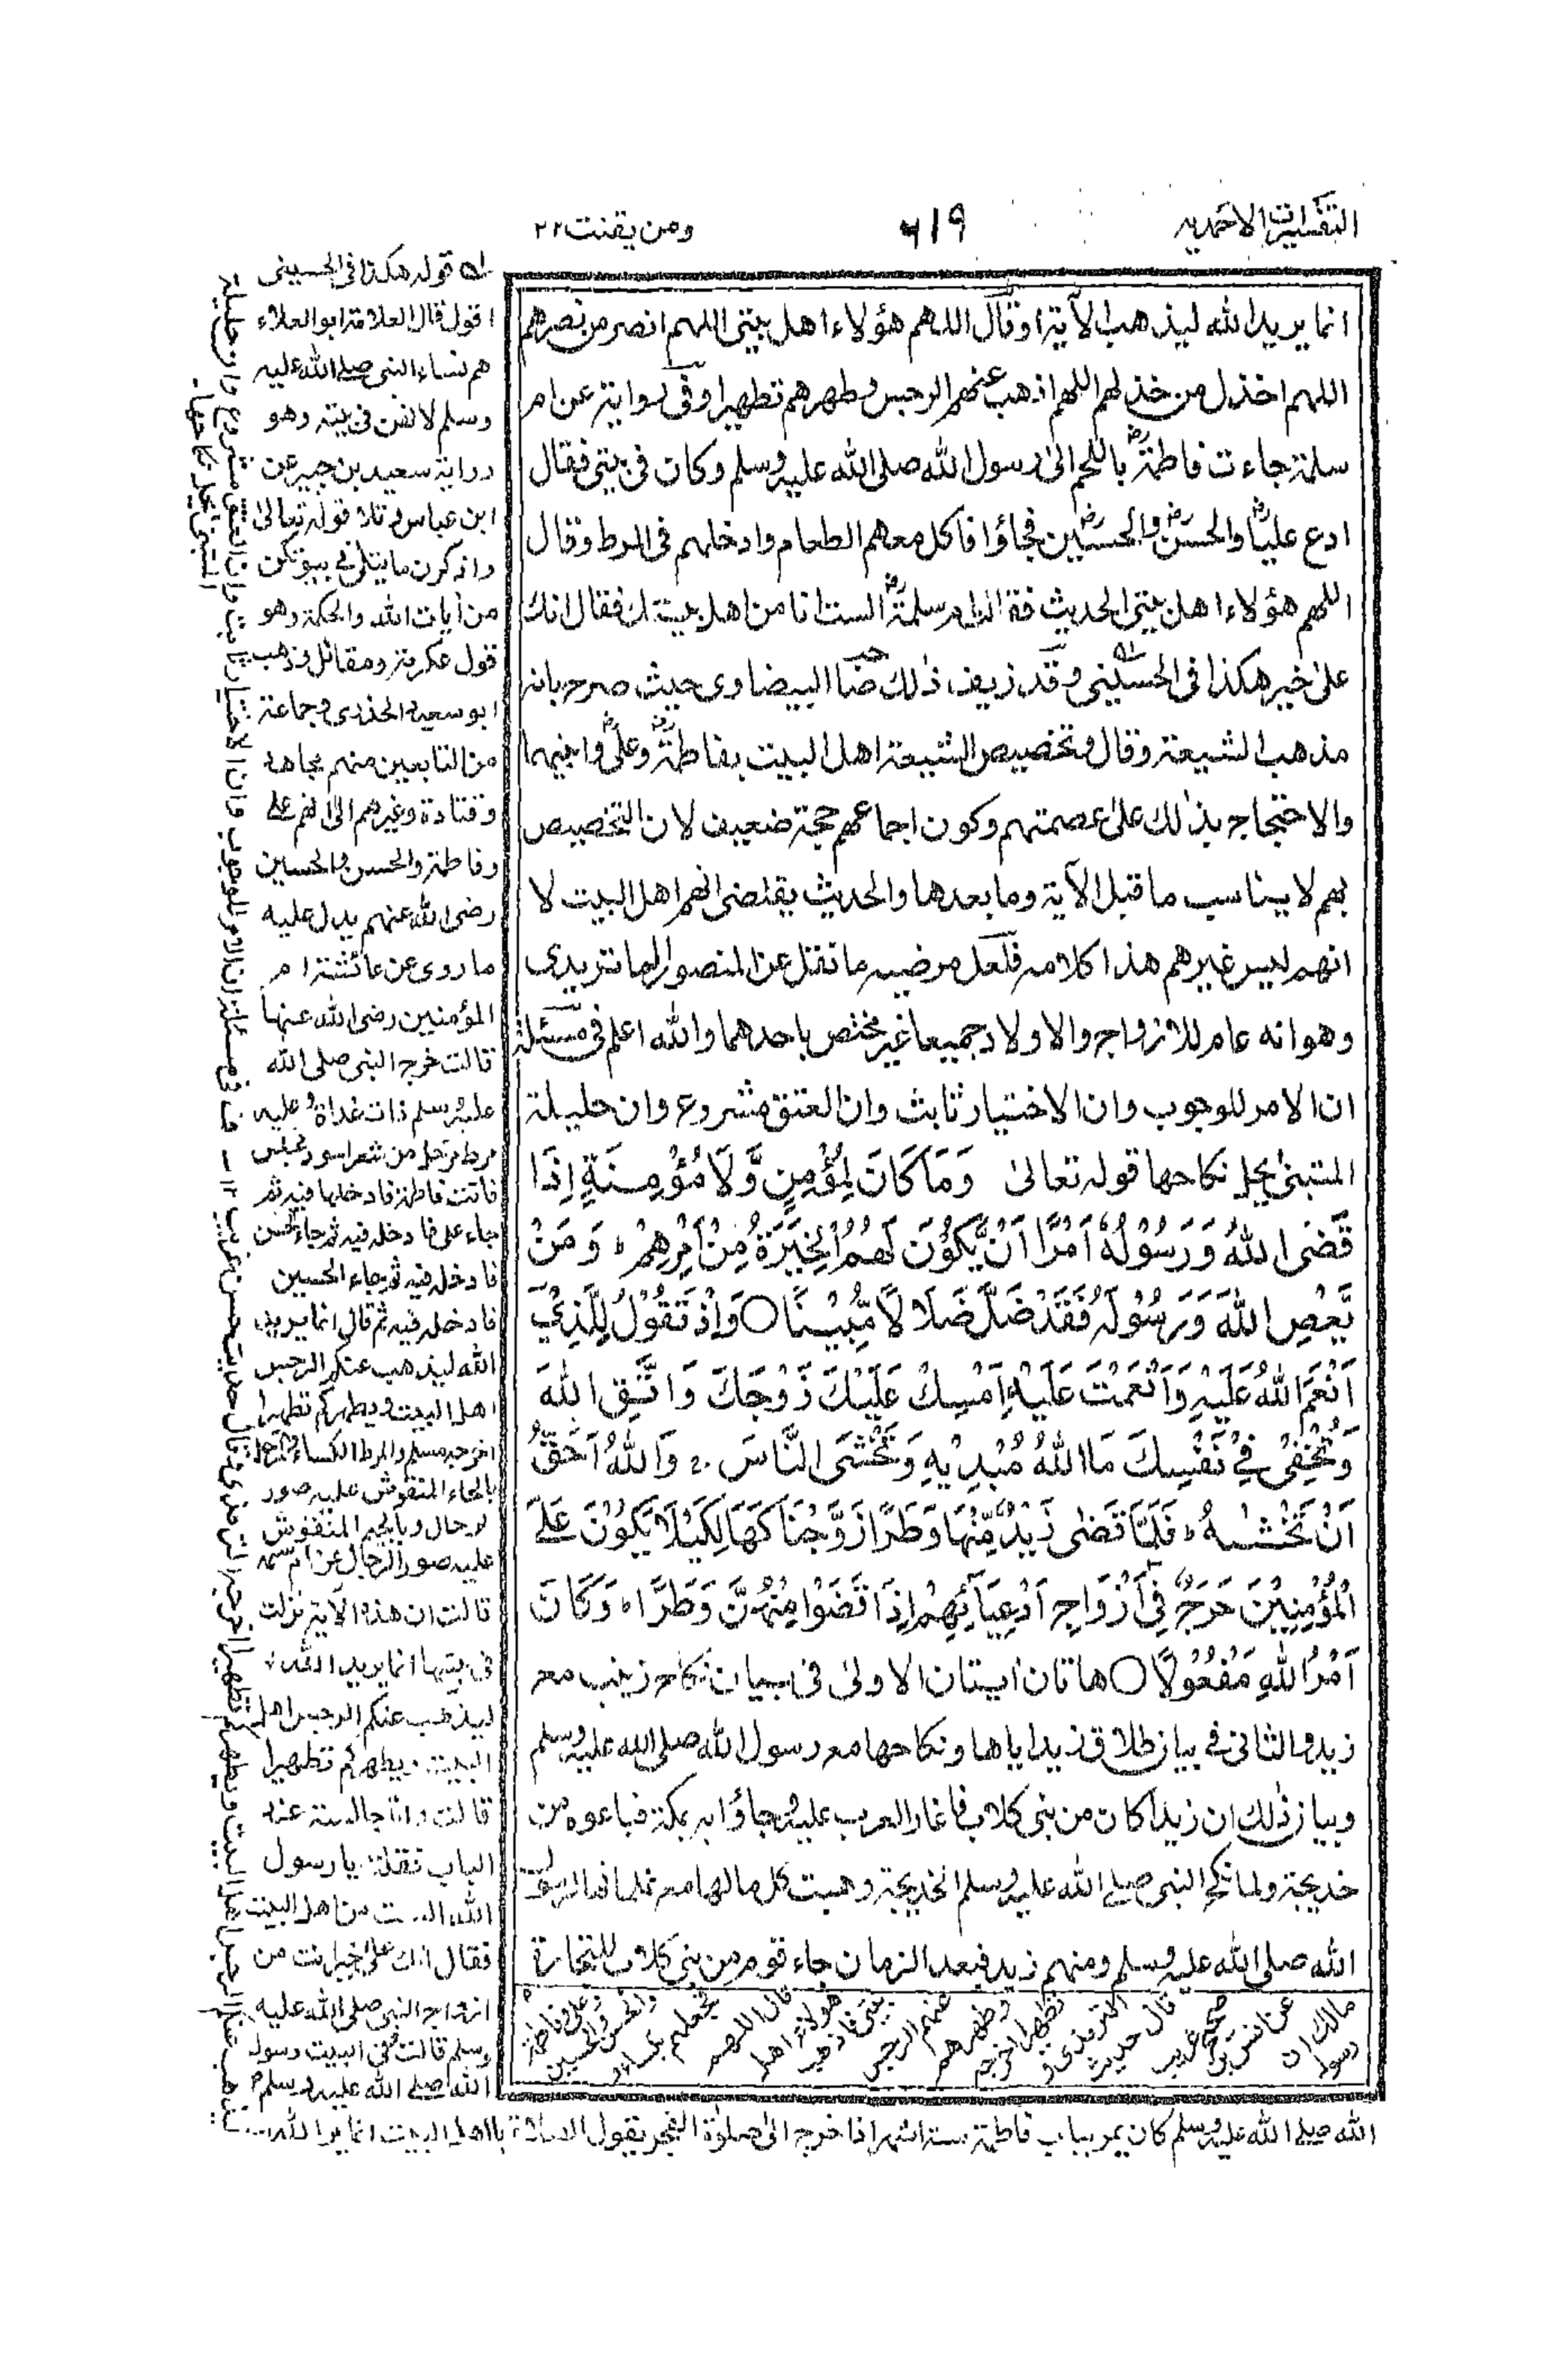 التفسيرات الاحمديه
٦١٩
ومن يقنت ٢٢
انما يريد الله ليذهب الآية او قال اللهم هؤلاء اهل بيتى اللهم انصر من نصرهم
اللهم اخذل من خذلهم اللهم اذهب عنهم الرجس وطهرهم تطهيرا وفى رواية عن ام
سلمة جاءت فاطمةؓ باللحم الى رسول الله صلى الله عليه وسلم وكان فى بيتى فقال
ادع علياؓ والحسنؓ والحسينؓ فجاؤا فاكل معهم الطعام وادخلهم فى المرط وقال
اللهم هؤلاء اهل بيتى الحديث فقالت ام سلمةؓ الست انا من اهل بيتك فقال انك
على خير هكذا فى الحسينى وقد زيف ذلك البيضاوى حيث صرح بانه
مذهب الشيعة وقال وتخصيص الشيعة اهل البيت بفاطمةؓ وعلىؓ وابنيهما
والاحتجاج بذلك على عصمتهم وكون اجماعهم حجة ضعيف لان التخصيص
بهم لا يناسب ما قبل الآية وما بعدها والحديث يقتضى انهم اهل البيت لا
انهم ليس غيرهم هذا كلامه فلعل مرضيه ما نقل عن المنصور الماتريدى
وهو انه عام للازواج والاولاد جميعا غير مختص باحدهما والله اعلم فى مسئلة
ان الامر للوجوب وان الاختيار ثابت وان العتق مشروع وان حليلة
المتبنى يحل نكاحها قوله تعالى وَمَا كَانَ لِمُؤْمِنٍ وَّلَا مُؤْمِنَةٍ اِذَا
قَضَى اللهُ وَرَسُوْلُهٗ اَمْرًا اَنْ يَّكُوْنَ لَهُمُ الْخِيَرَةُ مِنْ اَمْرِهِمْ ؕ وَمَنْ
يَّعْصِ اللهَ وَرَسُوْلَهٗ فَقَدْ ضَلَّ ضَلَالًا مُّبِيْنًا ○ وَاِذْ تَقُوْلُ لِلَّذِيْ
اَنْعَمَ اللهُ عَلَيْهِ وَاَنْعَمْتَ عَلَيْهِ اَمْسِكْ عَلَيْكَ زَوْجَكَ وَاتَّقِ اللهَ
وَتُخْفِيْ فِيْ نَفْسِكَ مَا اللهُ مُبْدِيْهِ وَتَخْشَى النَّاسَ ۚ وَاللهُ اَحَقُّ
اَنْ تَخْشٰىهُ ؕ فَلَمَّا قَضٰى زَيْدٌ مِّنْهَا وَطَرًا زَوَّجْنَاكَهَا لِكَيْلَا يَكُوْنَ عَلَى
الْمُؤْمِنِيْنَ حَرَجٌ فِيْ اَزْوَاجِ اَدْعِيَآئِهِمْ اِذَا قَضَوْا مِنْهُنَّ وَطَرًا ؕ وَكَانَ
اَمْرُ اللهِ مَفْعُوْلًا ○ هاتان آيتان الاولى فى بيان نكاح زينب مع
زيد والثانى فى بيان طلاق زيد اياها ونكاحها مع رسول الله صلى الله عليه وسلم
وبيان ذلك ان زيدا كان من بنى كلاب فاغار العرب عليه وجاؤا به بمكة فباعوه من
خديجة ولما نكح النبى صلى الله عليه وسلم الخديجة وهبت كل مالها مع غلمانها لرسول
الله صلى الله عليه وسلم ومنهم زيد فبعد الزمان جاء قوم من بنى كلاب للتجارة
قوله هكذا فى الحسينى
اقول قال العلامة ابو العلاء
هم نساء النبى صلى الله عليه
وسلم لانهن فى بيته وهو
رواية سعيد بن جبير عن
ابن عباس وتلا قوله تعالى
واذكرن ما يتلى فى بيوتكن
من آيات الله والحكمة وهو
قول عكرمة ومقاتل وذهب
ابو سعيد الخدرى وجماعة
من التابعين منهم مجاهد
وقتادة وغيرهم الى انهم على
وفاطمة والحسن والحسين
رضى الله عنهم يدل عليه
ما روى عن عائشة ام
المؤمنين رضى الله عنها
قالت خرج النبى صلى الله
عليه وسلم ذات غداة وعليه
مرط مرحل من شعر اسود فجلس
فاتت فاطمة فادخلها فيه ثم
جاء على فادخله فيه ثم جاء الحسن
فادخله فيه ثم جاء الحسين
فادخله فيه ثم قال انما يريد
الله ليذهب عنكم الرجس
اهل البيت ويطهركم تطهيرا
اخرجه مسلم والمرط الكساء والمرحل
بالحاء المنقوش عليه صور
الرحال وبالجيم المنقوش
عليه صور الرجال عن ام سلمة
قالت ان هذه الآية نزلت
فى بيتها انما يريد الله
ليذهب عنكم الرجس اهل
البيت ويطهركم تطهيرا
قالت وانا جالسة عند
الباب فقلت يا رسول
الله الست من اهل البيت
فقال انك على خير انت من
ازواج النبى صلى الله عليه
وسلم قالت وفى البيت رسول
الله صلى الله عليه وسلم
وعلى وفاطمة
والحسن والحسين
فجللهم بكساء
قال اللهم
هؤلاء اهل
بيتى فاذهب
عنهم الرجس
وطهرهم
تطهيرا اخرجه
الترمذى و
قال حديث
صحيح غريب
عن انس بن
مالك ان
رسول
الله صلى الله عليه وسلم كان يمر بباب فاطمة ستة اشهر اذا خرج الى صلوة الفجر يقول الصلوة يا اهل البيت انما يريد الله
ليذهب عنكم الرجس اهل البيت ويطهركم تطهيرا اخرجه الترمذى وقال حديث حسن غريب ١٢ ـ ف فى مسئلة ان الامر للوجوب وان الاختيار ثابت وان العتق مشروع وان حليلة
المتبنى يحل نكاحها ـ